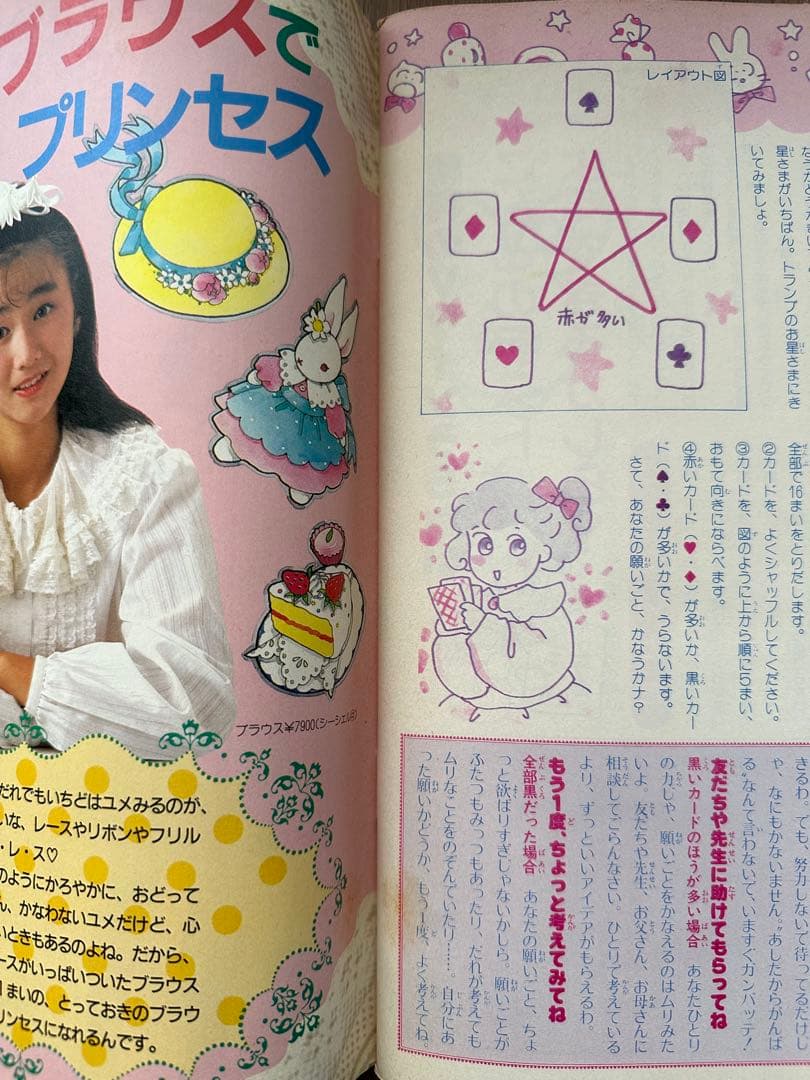 ブラウスで
プリンセス
ブラウス¥7900(シーシェル日)
だれでもいちどはユメみるのが、
いな、レースやリボンやフリル
・レ・ス♡
のようにかろやかに、おどって
ん、かなわないユメだけど、心
いときもあるのよね。だから、
ースがいっぱいついたブラウス
1まいの、とっておきのブラウ
リンセスになれるんです。
レイアウト図
赤が多い
星さまがいちばん。トランプのお星さまにき
いてみましょ。
全部で16まいをとりだします。
②カードを、よくシャッフルしてください。
③カードを、図のように上から順に5まい、
おもて向きにならべます。
④赤いカード(♥・♦)が多いか、黒いカー
ド(♠・♣)が多いかで、うらないます。
さて、あなたの願いごと、かなうかナ?
きるわ。でも、努力しないで待ってるだけじ
ゃ、なにもかないません。“あしたからがんば
る”なんて言わないで、いますぐガンバッテ!
友だちや先生に助けてもらってね
黒いカードのほうが多い場合 あなたひとり
の力じゃ、願いごとをかなえるのはムリみた
いよ。友だちや先生、お父さん、お母さんに
相談してごらんなさい。ひとりで考えている
より、ずっといいアイデアがもらえるわ。
もう1度、ちょっと考えてみてね
全部黒だった場合 あなたの願いごと、ちょ
っと欲ばりすぎじゃないかしら。願いごとが
ふたつもみっつもあったり、だれが考えても
ムリなことをのぞんでいたり……。自分にあ
った願いかどうか、もう1度、よく考えてね。